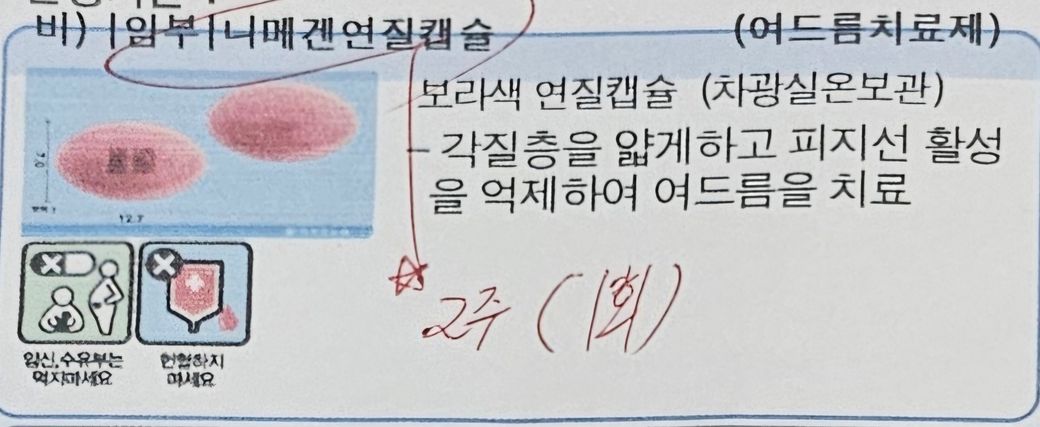 비) |임부|니메겐연질캡슐 (여드름치료제)
보라색 연질캡슐 (차광실온보관)
- 각질층을 얇게하고 피지선 활성
을 억제하여 여드름을 치료
7.0
12.7
임신,수유부는
먹지마세요
헌혈하지
마세요
2주 (1회)